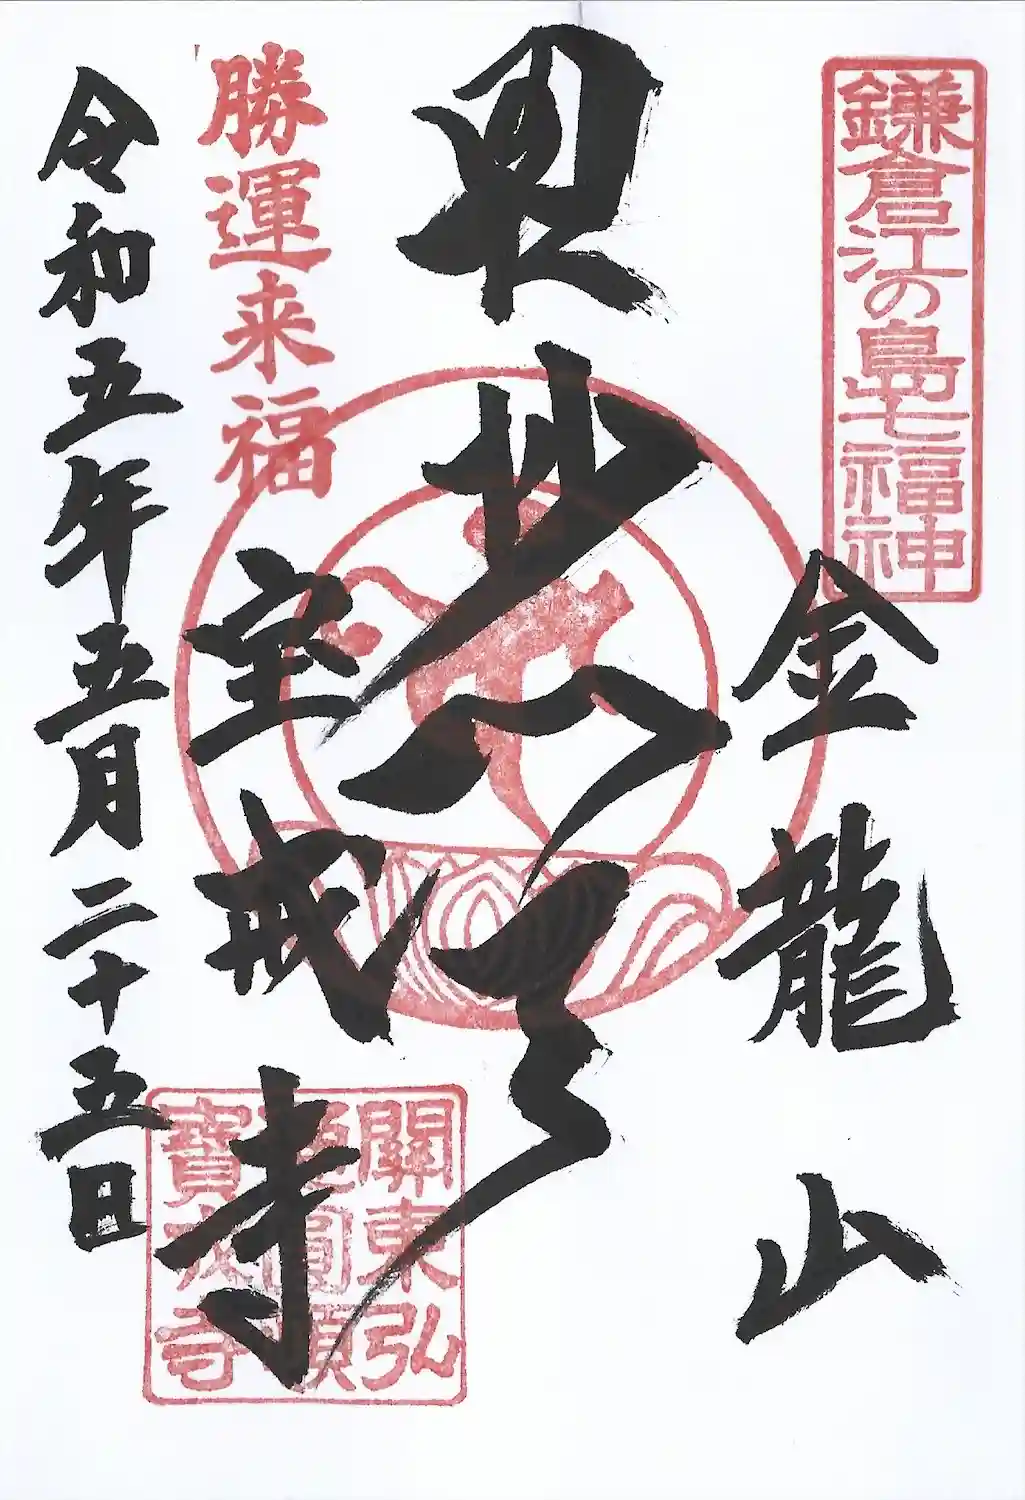 鎌倉江の島七福神
金龍山
毘沙門天
勝運来福
宝戒寺
令和五年五月二十五日
關東弘
圓頓
寶戒寺